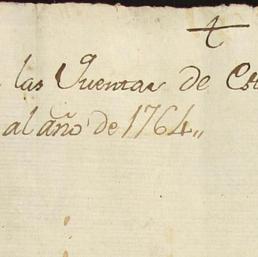 las Quentas de
al año de 1764,,